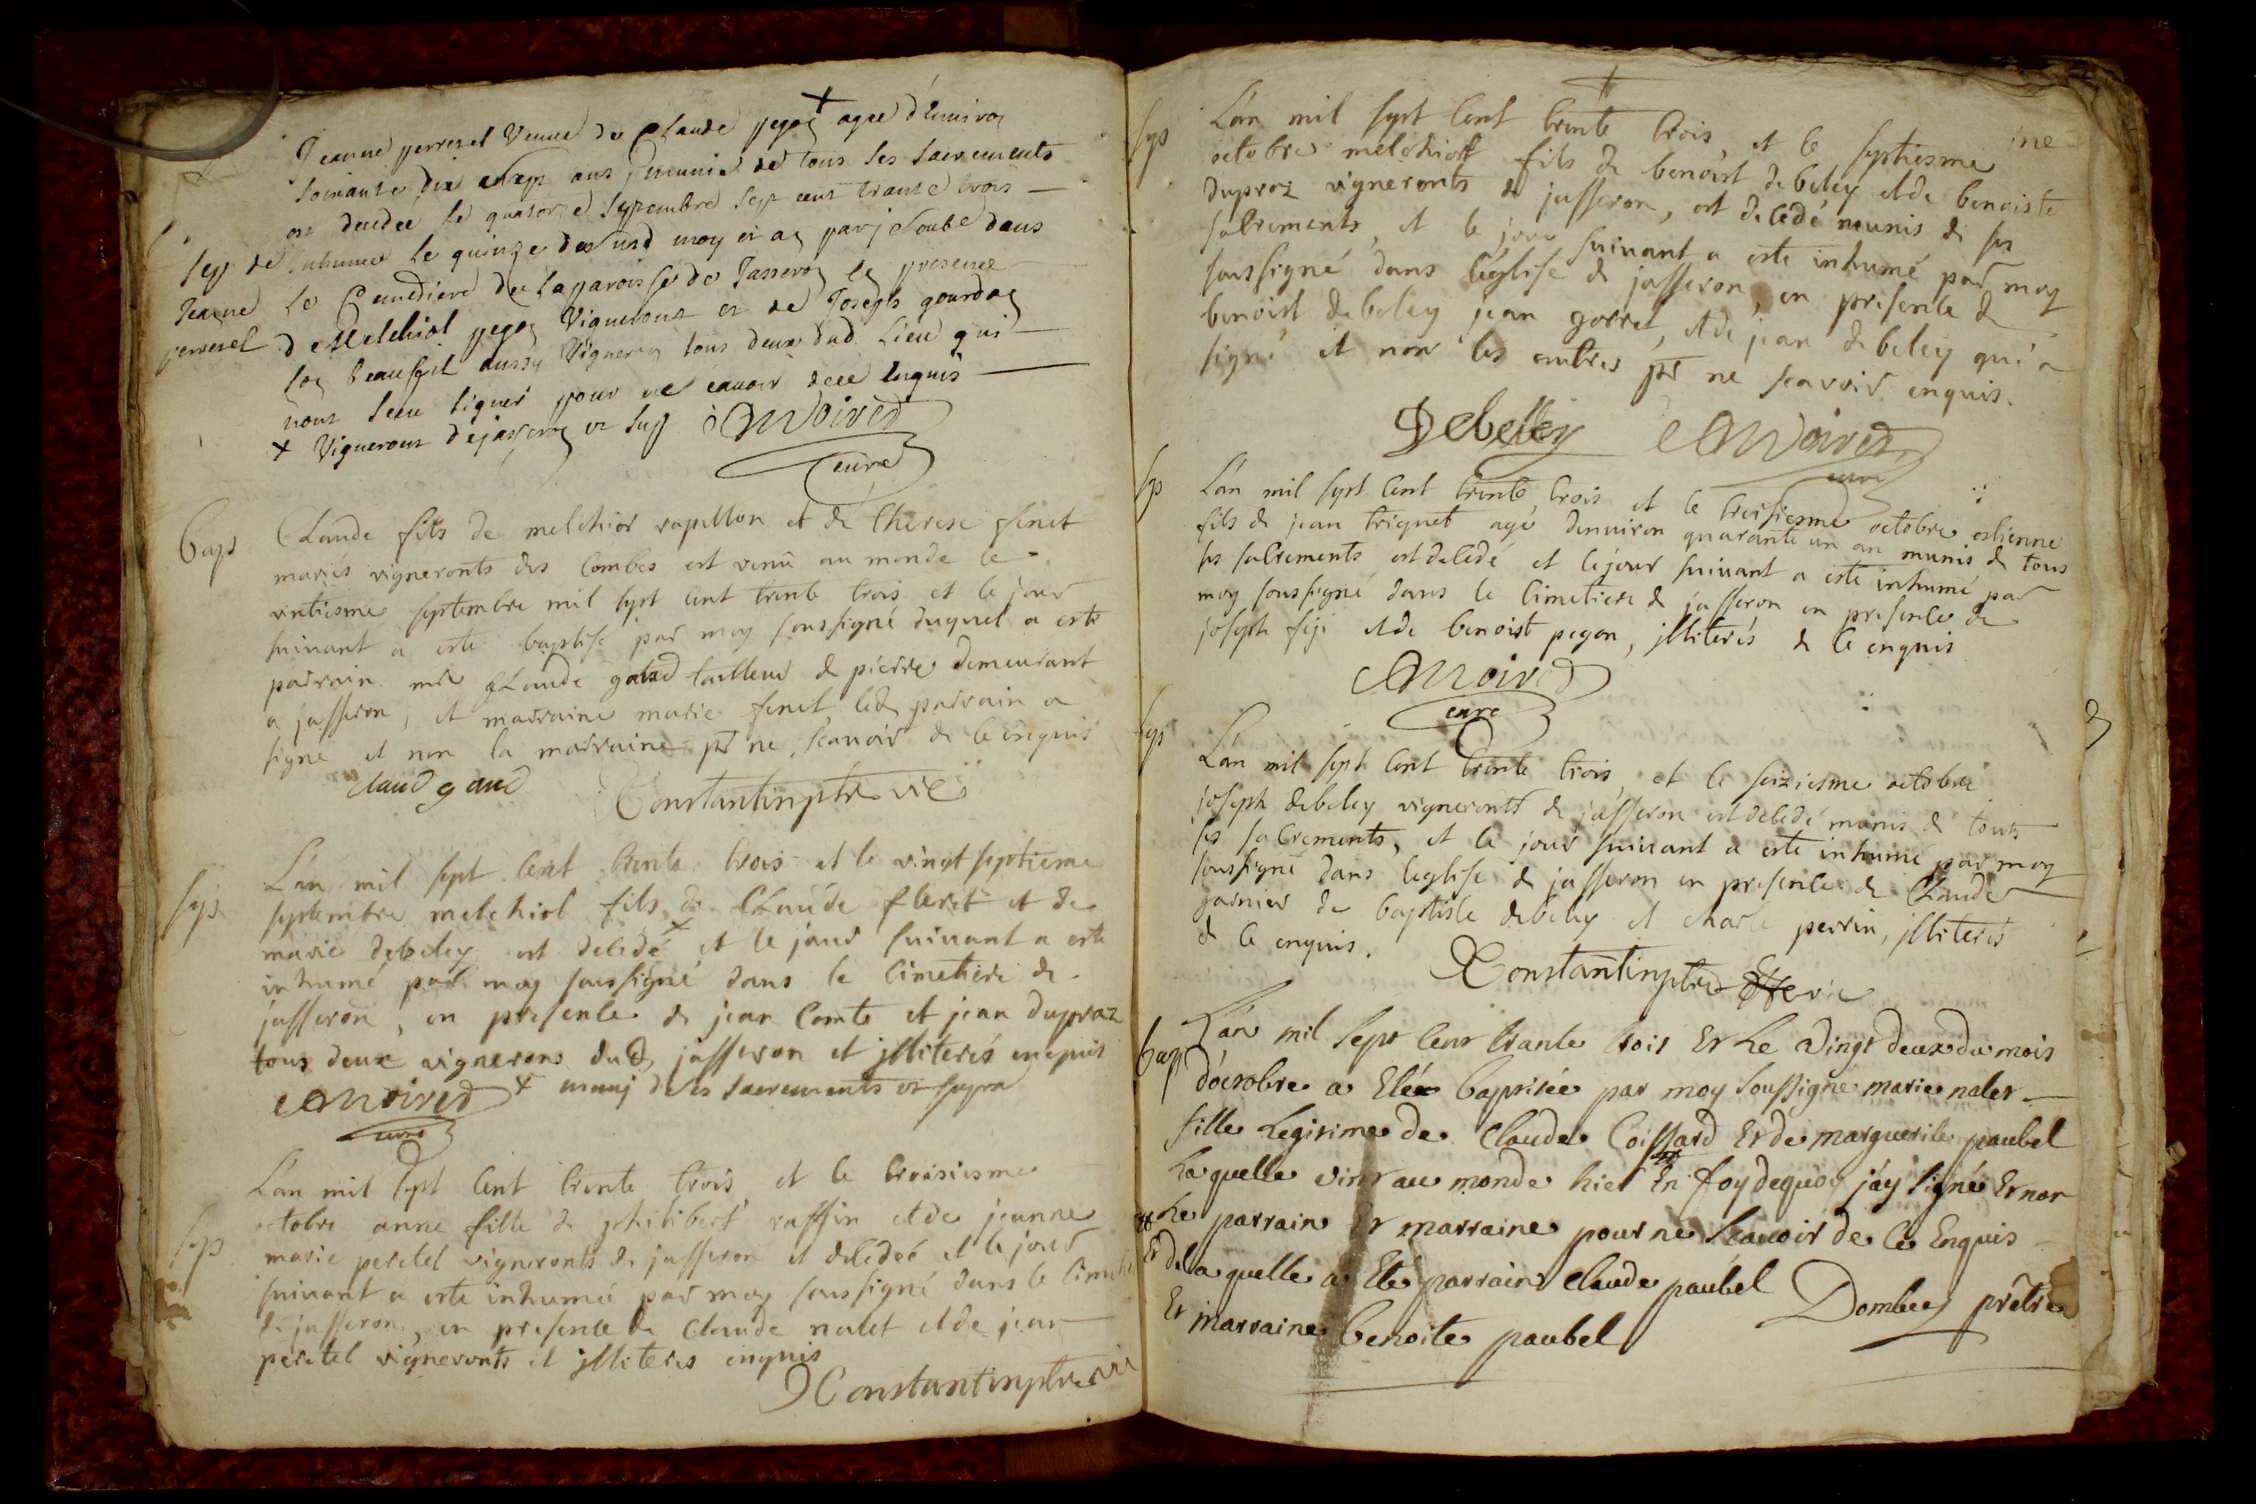 Jeanne perretel veuve de Claude pegon + agée d'environ
soixante dix et sept ans munie de tous ses sacrements
est decedée le quatorze septembre sept cent trante trois
sep de inhumée le quinze dud moy et an
Jeanne le Cemetiere de la paroisse de Jasseron en presence
perretel de Melchiol pegon vigneront et de Joseph gourdan
son beaufil aussy vigneron tous deux dud. lieu qui
n'ont sceu signer pour ne scavoir de ce enquis
+ vigneront de jasseron ut sup Moiret
curé
bap Claude fils de melchior rapillon et de therese finet
mariés vigneronts des Combes est venu au monde le
vintiesme septembre mil sept cent trente trois et le jour
suivant a esté baptisé par moy soussigné duquel a esté
parrain me Claude galud tailleur de pierre demeurant
a jasseron, et marraine marie finet led parrain a
signé et non la marraine pr ne scavoir de ce enquis
claud gaud Constantin ptre vic
sep L'an mil sept cent trente trois et le vingt septieme
septembre melchiol fils de Claude fleret et de
marie debeley est decedé + et le jour suivant a esté
inhumé par moy soussigné dans le cimetiere de
jasseron, en presence de jean Comte et jean dupraz
tous deux vignerons dud jasseron et jlliterés enquis
Moiret + muni de ses sacrements ut supra
curé
L'an mil sept cent trente trois et le troisiesme
sep octobre anne fille de philibert raffin et de jeanne
marie peretel vigneronts de jasseron et decedeé et le jour
suivant a esté inhumée par moy soussigné dans le cimetie
de jasseron, en presence de Claude nalet et de jean
peretel vigneronts et jlliterés enquis
Constantin ptre vic
sep L'an mil sept cent trente trois, et le septiesme
octobre melchiort fils de benoist debeley et de benoiste
dupraz vigneronts de jasseron, est decedé munis de ses
sacrements, et le jour suivant a esté inhumé par moy
soussigné dans l'église de jasseron, en presence de
benoist debeley jean gorret, et de jean debeley qui a
signé et non les autres pr ne scavoir enquis.
Debeley Moiret
curé
sep L'an mil sept cent trente trois et le treisiesme octobre estienne
fils de jean triquet agé d'environ quarante un an munis de tous
ses sacrements est decedé et le jour suivant a esté inhumé par
moy soussigné dans le cimetiere de jasseron en presence de
joseph et de benoist pegon, jlliterés de ce enquis
Moiret
curé
sep L'an mil sept cent trente trois et le seiziesme octobre
joseph debeley vigneronts de jasseron est decedé munis de touts
ses sacrements, et le jour suivant a esté inhumé par moy
soussigné dans l'eglise de jasseron en presence de Claude
garnier de baptiste debeley et charle perrin, jlliterés
de ce enquis.
Constantin ptre vic
L'an mil sept cent trante trois Et Le vingt deux du mois
bap d'octobre a Eté baptisée par moy soussigné marie nalet
fille Legitime de Claude Coissard Et de marguerite paubel
Laquelle vint au monde hier En foy de quoy j'ay signé Et non
Le parrain Et marraine pour ne scavoir de ce Enquis
Et de laquelle a Eté parrain Claude paubel
Et marraine benoite paubel Dombey prêtre